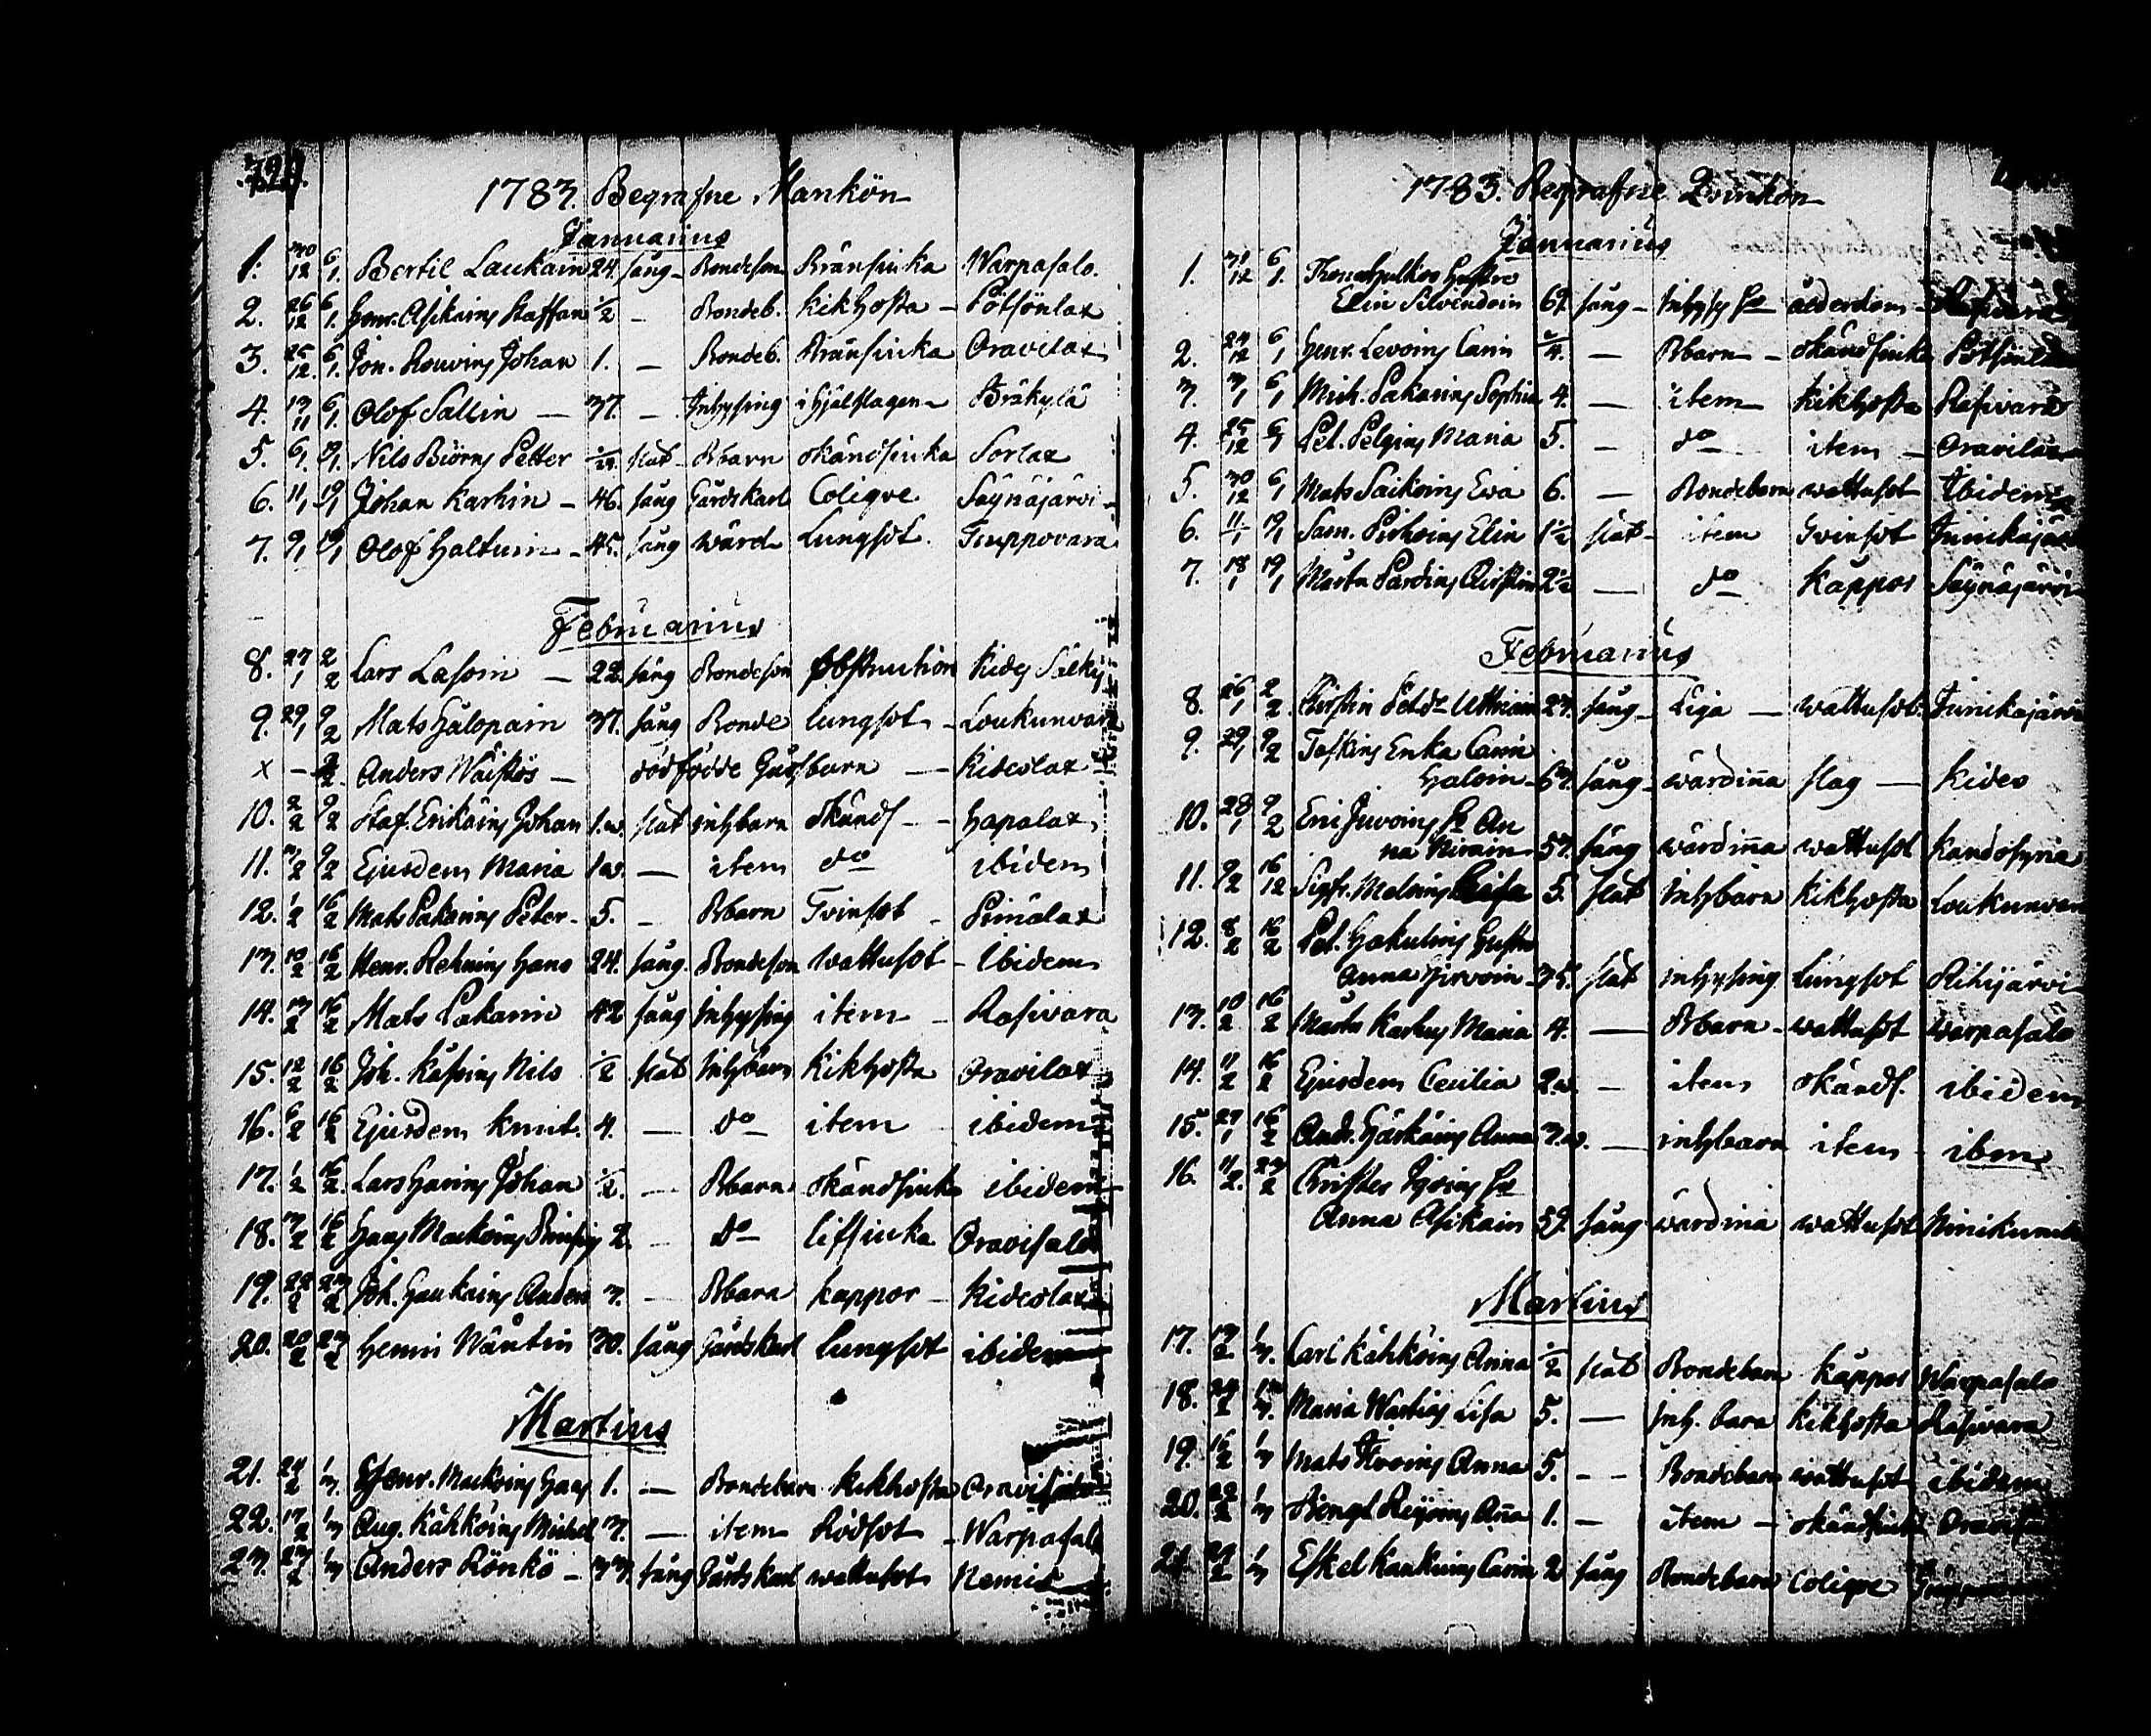 1783. Begrafne Mankön
Januarius
1. 30/12 6/1. Bertil Laukain 24. säng- Bondeson Bränsiuka Warpasalo.
2. 26/12 6/1. Henr. Asikains Staffan 1/2 - Bondeb. kikhosta - Pötsönlax
3. 25/12. 6/1. Jon. Rouvins Johan 1. - Bondeb. Bränsiuka Oravilax
4. 13/11 6/1 Olof Sallin - 37. - Inhysing ihjälslagen - Bräkylä
5. 6/1. 19/1. Nils Biörns Petter slut- Bbarn skändsiuka Sorlax
6. 11/1 19/1 Johan Karhin - 46. säng Gårdskarl Colique Säynäjärvi -
7. 9/1 19/1 Olof Haltuin - 45. säng wärd Lungsot. Truppovara
Februarius
8. 27/1 2/2 Lars Lasoin - 22. säng Bondeson obstruction Kides Sälky
9. 29/1 9/2 Mats Hälopain 37. säng Bonde lungsot - Loukunvara
x - 9/2. Anders Wäistös - dödfödde barn - Kideslax
10. 2/2 9/2 Staf. Erikäins Johan 1.w. slut inhbarn skänds - Hapalax,
11. 3/2 9/2 Ejusdem Maria 1w. - item do ibidem
12. 1/2 16/2 Mats Pakarins Peter - 5. - Bbarn Tvinsot - Peinälax
13. 10/2 16/2 Henr. Rehnins Hans 24. säng. Bondeson wattusot - ibidem
14. 13/2 16/2 Mats Pakarin 42 säng inhysing item - Rasivara
15. 12/2 16/2 Joh. Käsöins Nils 1/2 slut inhbarn kikhosta Oravilax
16. 6/2 16/2 Ejusdem Knut. 4. - do item ibidem
17. 1/2 16/2. Lars Harins Johan 1/2. - Bbarn skändsiuka ibidem
18. 13/2 16/2 Hans Mackoins 2. - do lifsiuka Oravisalo
19. 22/2 23/2 Joh. Haukains Anders 3. - Bbarn kappor - Kideslax
20. 20/2 23/2 Henri Wäntin 30. säng Gårdskarl lungsot ibidem
Martius
21. 24/2 1/3. Henr. Mackoins Hans 1. - Bondebarn kikhosta Oravisalo
22. 17/2 1/3 Aug. Kähköins Michel 3. - item Rödsot - Warpasalo
23. 23/2 1/3 Anders Rönkö - 33. säng Gårdskarl wattusot Niemis
1783. Begrafne Qvinkön
Januarius
1. 31/12 6/1. Hustro
Elin Silvendoin 69. säng - inhys Ha ålderdom - Rasivara
2. 24/12 6/1 Henr. Levoins Carin 3/4. - Bbarn - skändsiuka Pötsönlax
3. 3/1 6/1 Mich. Pakarins Sophia 4. - item - kikhosta Rasivara
4. 25/12 6/1 Pet. Pelgins Maria 5. - do item - Oravilax
5. 30/12 6/1 Mats Saikoins Ewa 6. - Bondebarn wattusot Ibidem
6. 11/1 19/1 Sam. Pirhoins Elin 1 1/2 slut - item Tvinsot Juurikajärvi
7. 18/1 19/1 Mårtn Pardins Kirstin 2 1/2 - do kappor Säynäjärvi
Februarius
8. 26/1 2/2 Kirstin Petdr Uttriain 27. säng - Piga - wattusot Juurikajärvi
9. 29/1 9/2 Toskins Enka Carin
Haloin - 63. säng - wärdiña slag - Kides
10. 28/1 9/2 Eric Juvoins Ha An
na Hirain 57. säng wärdiña wattusot Kandosyria
11. 9/2 16/12 Sigfr. Melnins Caisa 5. slut inhbarn kikhosta Loukunvara
12. 8/2 16/2 Pet. Hakulins Hustro
Anna Hirvoin 35. slut inhysing lungsot Riihijärvi
13. 10/2 16/2 Mårtn Karhus Maria 4. - Bbarn - wattusot Warpasalo
14. 11/2 16/2 Ejusdem Cecilia 2.w. - item skändf. ibidem
15. 27/1 16/2 And. Härkäins Anna 3.w. - inhbarn item - ibm
16. 11/2. 23/2 Christer Ha
Anna Asikain 59. säng wärdiña wattusot
Martius
17. 13/2 1/3. Carl Kähköins Anna 1/2 slut Bondebarn kappor Warpasalo
18. 24/2 1/3. Maria Lisa 5. - inh. barn kikhosta Rasivara
19. 15/2 1/3 Mats Hvoins Anna 5. - Bondebarn wattusot ibidem
20. 22/2 1/3 Bengt Reijoins Aña 1. - item - skändsiuka
21. 24/2 1/3 Eskel Kaukuins Carin 2 säng Bondebarn colique